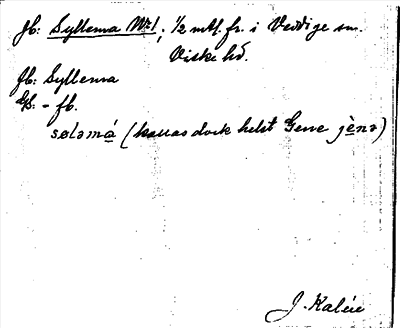 Jb: Syllema Nr 1, 1/2 mtl. fr. i Veddige sn.
Viske hd.
Jb: Syllema
Uf: - fb.
søləmá (kallas dock helst Gene jènə)
J. Kalén